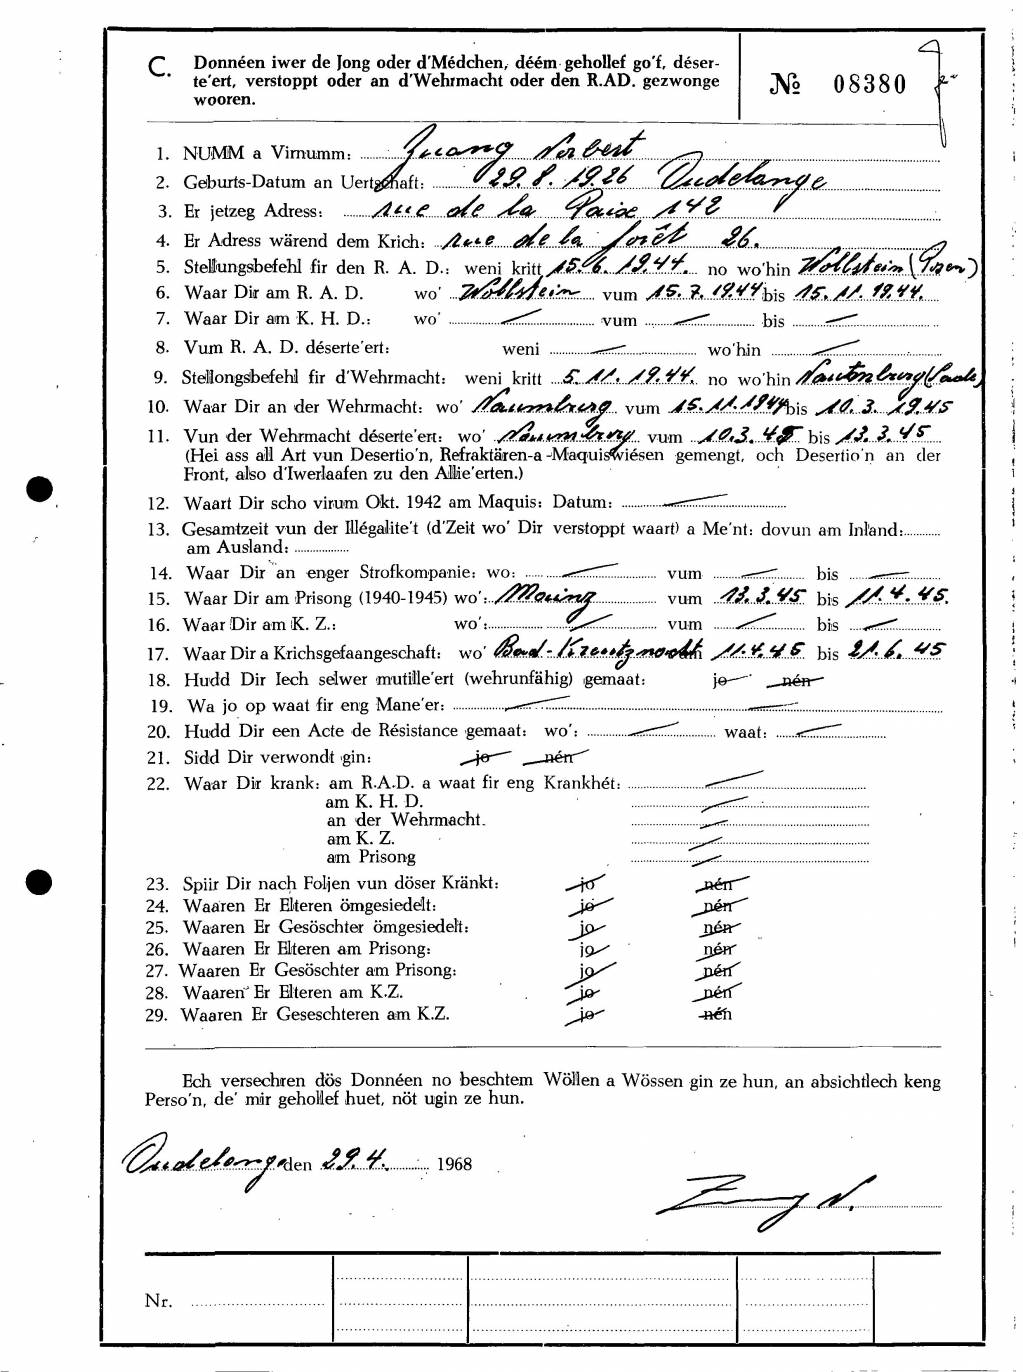 C. Donnéen iwer de Jong oder d'Médchen, déém gehollef go'f, déser-
te'ert, verstoppt oder an d'Wehrmacht oder den R.AD. gezwonge
wooren.
№ 08380
1. NUMM a Virnumm: Zuang Norbert
2. Geburts-Datum an Uertschaft: 29.8.1926 Dudelange
3. Er jetzeg Adress: rue de la Paix 142
4. Er Adress wärend dem Krich: rue de la forêt 26.
5. Stellungsbefehl fir den R. A. D.: weni kritt 15.6.1944. no wo'hin Wollstein (Posen)
6. Waar Dir am R. A. D. wo' Wollstein vum 15.7.1944 bis 15.11.1944.
7. Waar Dir am K. H. D.: wo' — vum — bis —
8. Vum R. A. D. déserte'ert: weni — wo'hin —
9. Stellongsbefehl fir d'Wehrmacht: weni kritt 5.11.1944. no wo'hin
10. Waar Dir an der Wehrmacht: wo' Naumburg vum 15.11.1944 bis 10.3.1945
11. Vun der Wehrmacht déserte'ert: wo' Naumburg vum 10.3.45 bis 13.3.45
(Hei ass all Art vun Desertio'n, Refraktären-a-Maquiswiésen gemengt, och Desertio'n an der
Front, also d'Iwerlaafen zu den Allie'erten.)
12. Waart Dir scho virum Okt. 1942 am Maquis: Datum: —
13. Gesamtzeit vun der Illégalite't (d'Zeit wo' Dir verstoppt waart) a Me'nt: dovun am Inland:
am Ausland:
14. Waar Dir an enger Strofkompanie: wo: — vum — bis —
15. Waar Dir am Prisong (1940-1945) wo': Mainz vum 13.3.45 bis 11.4.45.
16. Waar Dir am K. Z.: wo': — vum — bis —
17. Waar Dir a Krichsgefaangeschaft: wo' Bad-Kreutznach 11.4.45 bis 21.6.45
18. Hudd Dir Iech selwer mutille'ert (wehrunfähig) gemaat: jo nén
19. Wa jo op waat fir eng Mane'er: — —
20. Hudd Dir een Acte de Résistance gemaat: wo': — waat: —
21. Sidd Dir verwondt gin: jo nén
22. Waar Dir krank: am R.A.D. a waat fir eng Krankhét: —
am K. H. D. —
an der Wehrmacht. —
am K. Z. —
am Prisong —
23. Spiir Dir nach Foljen vun döser Kränkt: jo nén
24. Waaren Er Elteren ömgesiedelt: jo nén
25. Waaren Er Gesöschter ömgesiedelt: jo nén
26. Waaren Er Elteren am Prisong: jo nén
27. Waaren Er Gesöschter am Prisong: jo nén
28. Waaren Er Elteren am K.Z. jo nén
29. Waaren Er Geseschteren am K.Z. jo nén
Ech versechren dös Donnéen no beschtem Wöllen a Wössen gin ze hun, an absichtlech keng
Perso'n, de' mir gehollef huet, nöt ugin ze hun.
Dudelange den 29.4. 1968
Zuang N.
Nr.